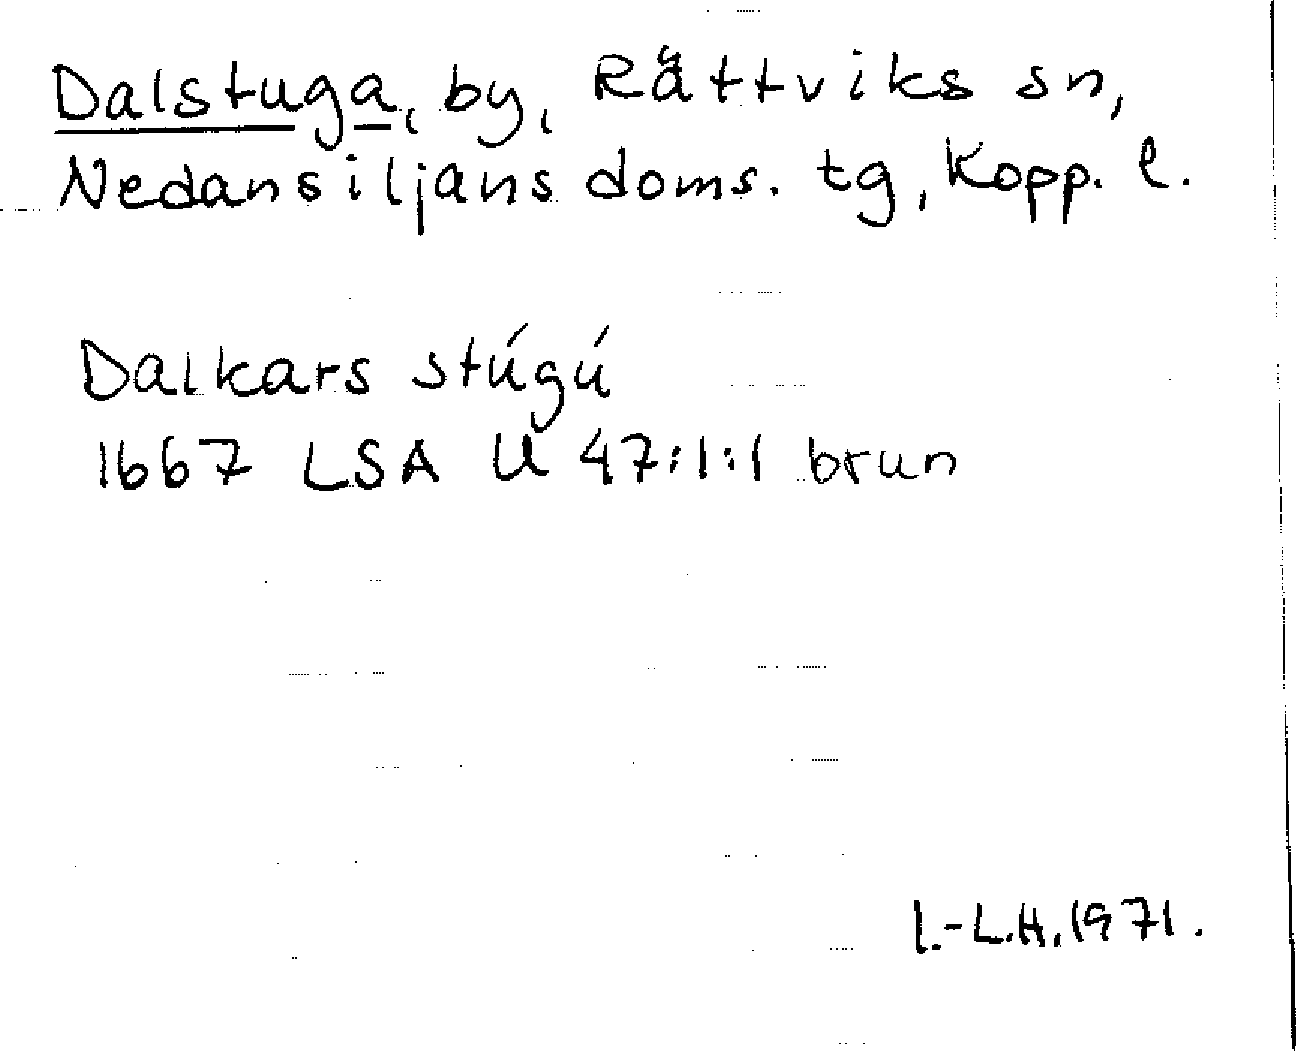 Dalstuga, by, Rättviks sn,
Nedansiljans doms. tg, Kopp. l.
Dalkars stúgú
1667 LSA U 47:1:1 brun
I.-L.H. 1971.